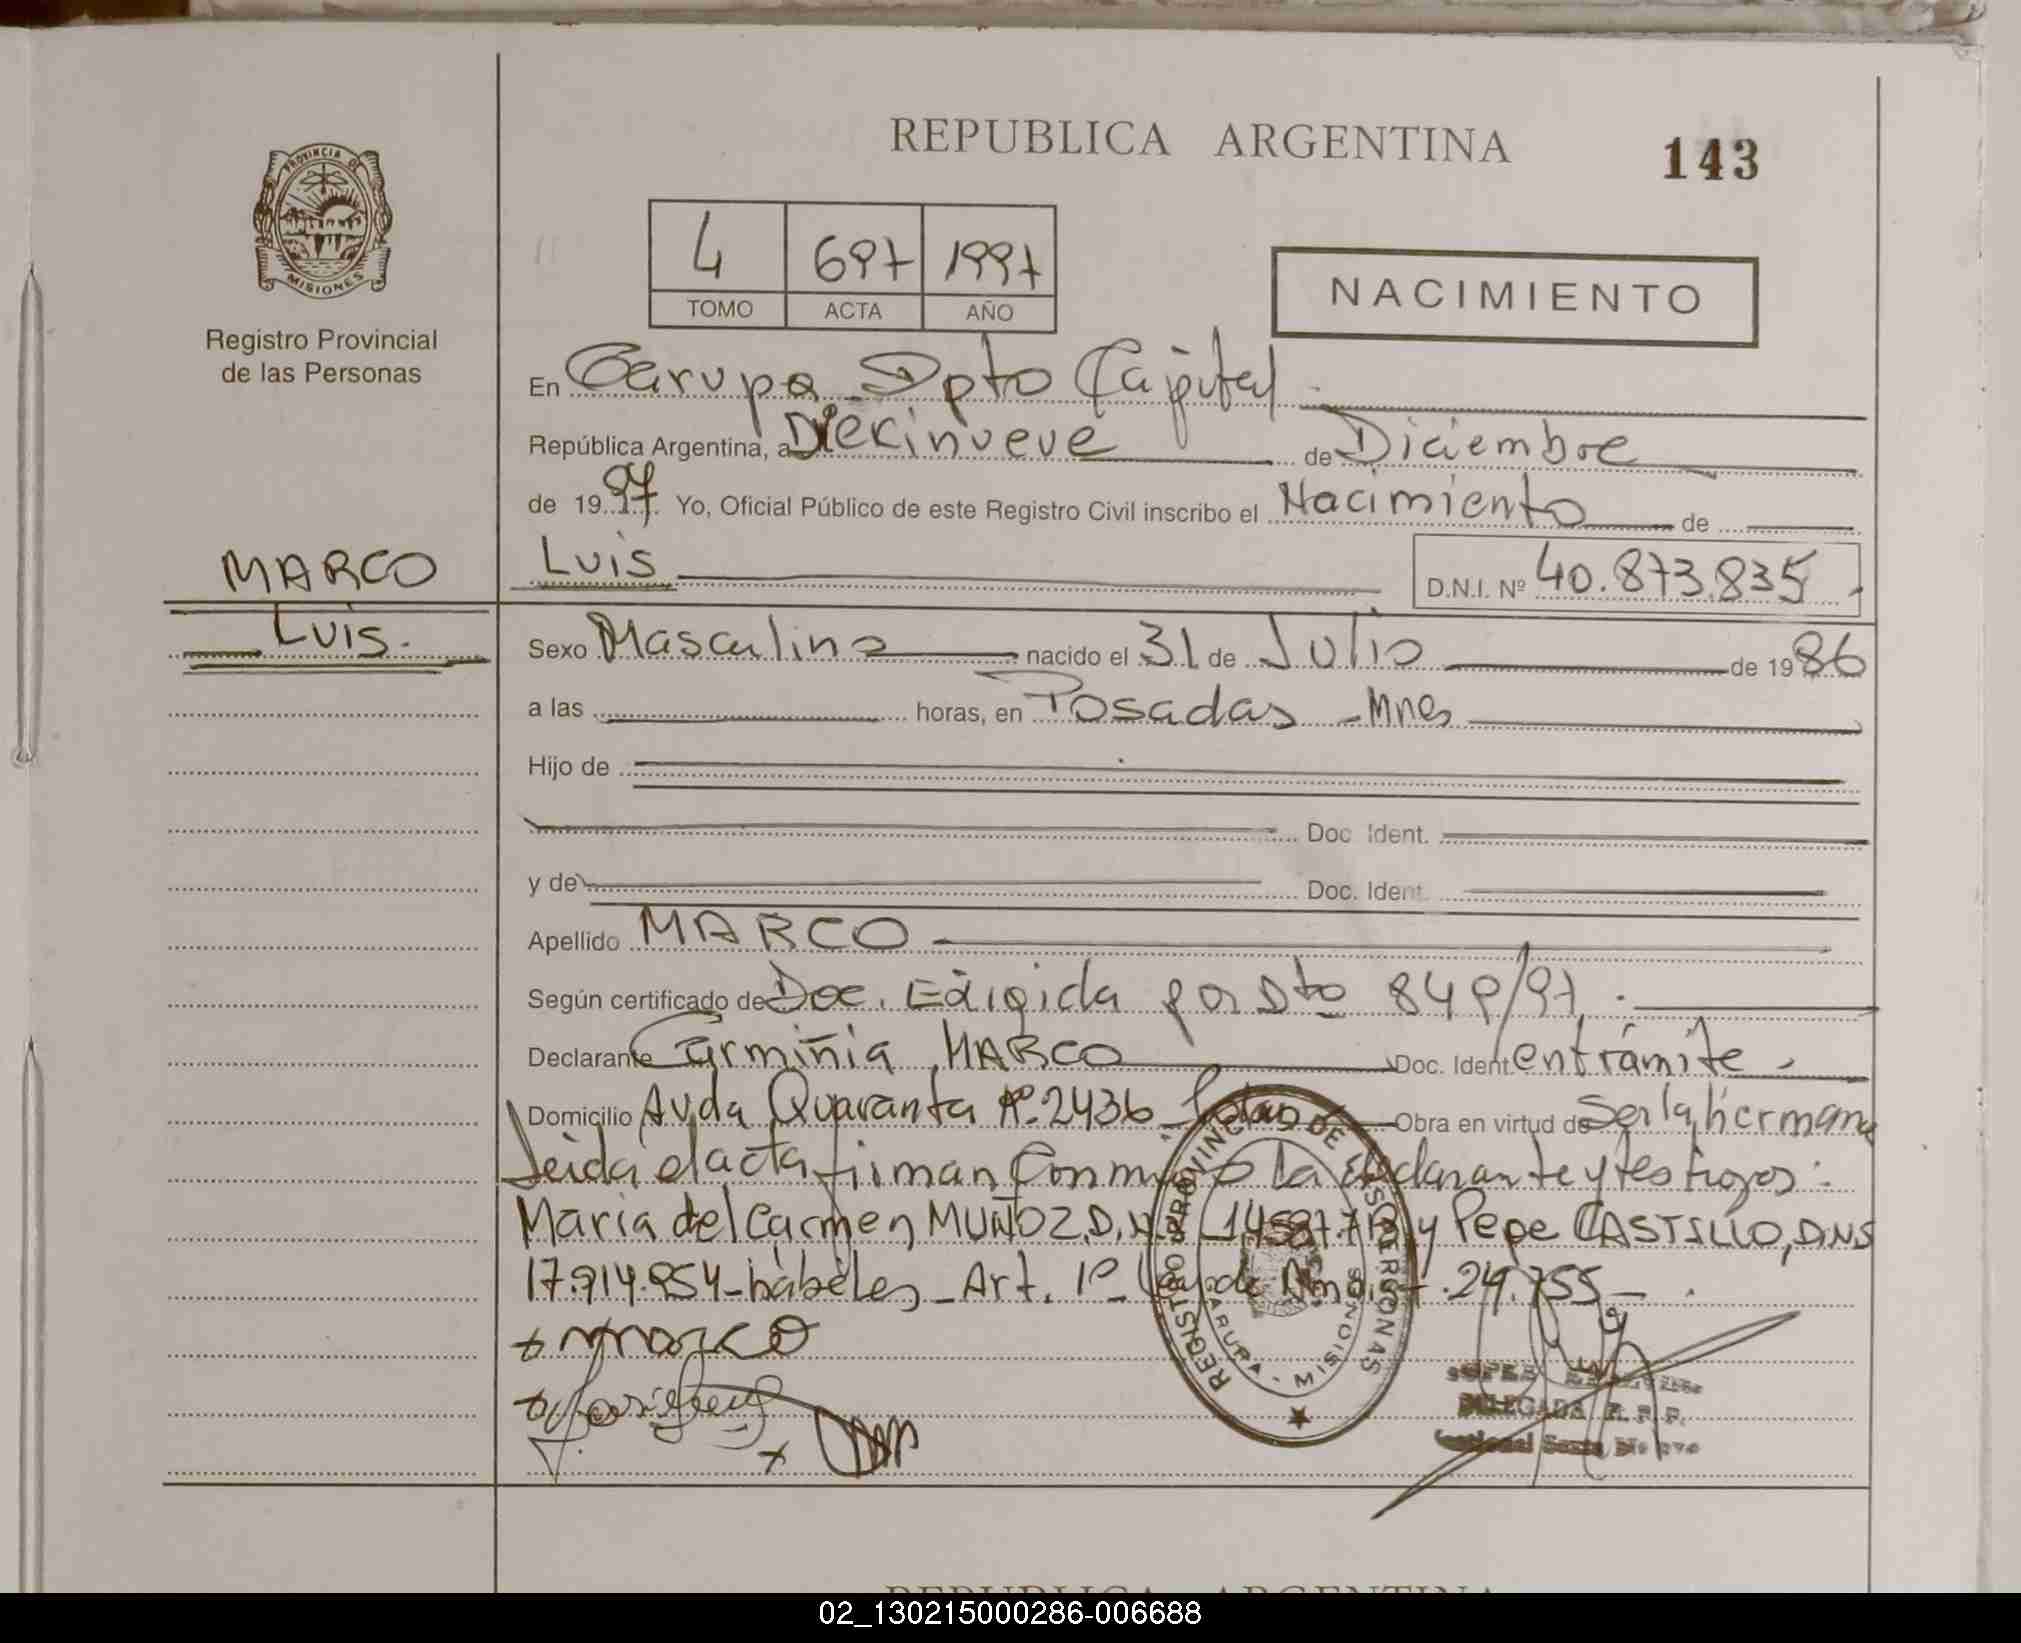 REPUBLICA ARGENTINA
143
PROVINCIA DE
MISIONES
Registro Provincial
de las Personas
4 697 1997
TOMO ACTA AÑO
NACIMIENTO
En Garupa Dpto Capital
República Argentina, a Diecinueve de Diciembre
de 1997 Yo, Oficial Público de este Registro Civil inscribo el Nacimiento de
MARCO
Luis.
Luis
D.N.I. Nº 40.873.835
Sexo Masculino nacido el 31 de Julio de 1986
a las horas, en Posadas - Mnes
Hijo de
Doc Ident.
y de Doc. Ident.
Apellido MARCO
Según certificado de Doc. Exigida por Dto 849/97.
Declarante MARCO Doc. Ident en trámite -
Domicilio Avda Quaranta Nº 2436 Obra en virtud de Ser la hermana
Leida el acta firman Conmigo la declarante y testigos:
Maria del Carmen MUÑOZ, D.N.I. y Pepe CASTILLO, DNI
17.914.954 - hábiles - Art. 1º Ley de 24.755 -
REGISTRO PROVINCIAL DE LAS PERSONAS
GARUPA - MISIONES
+ Marco
DELEGADA R.P.P.
02_130215000286-006688